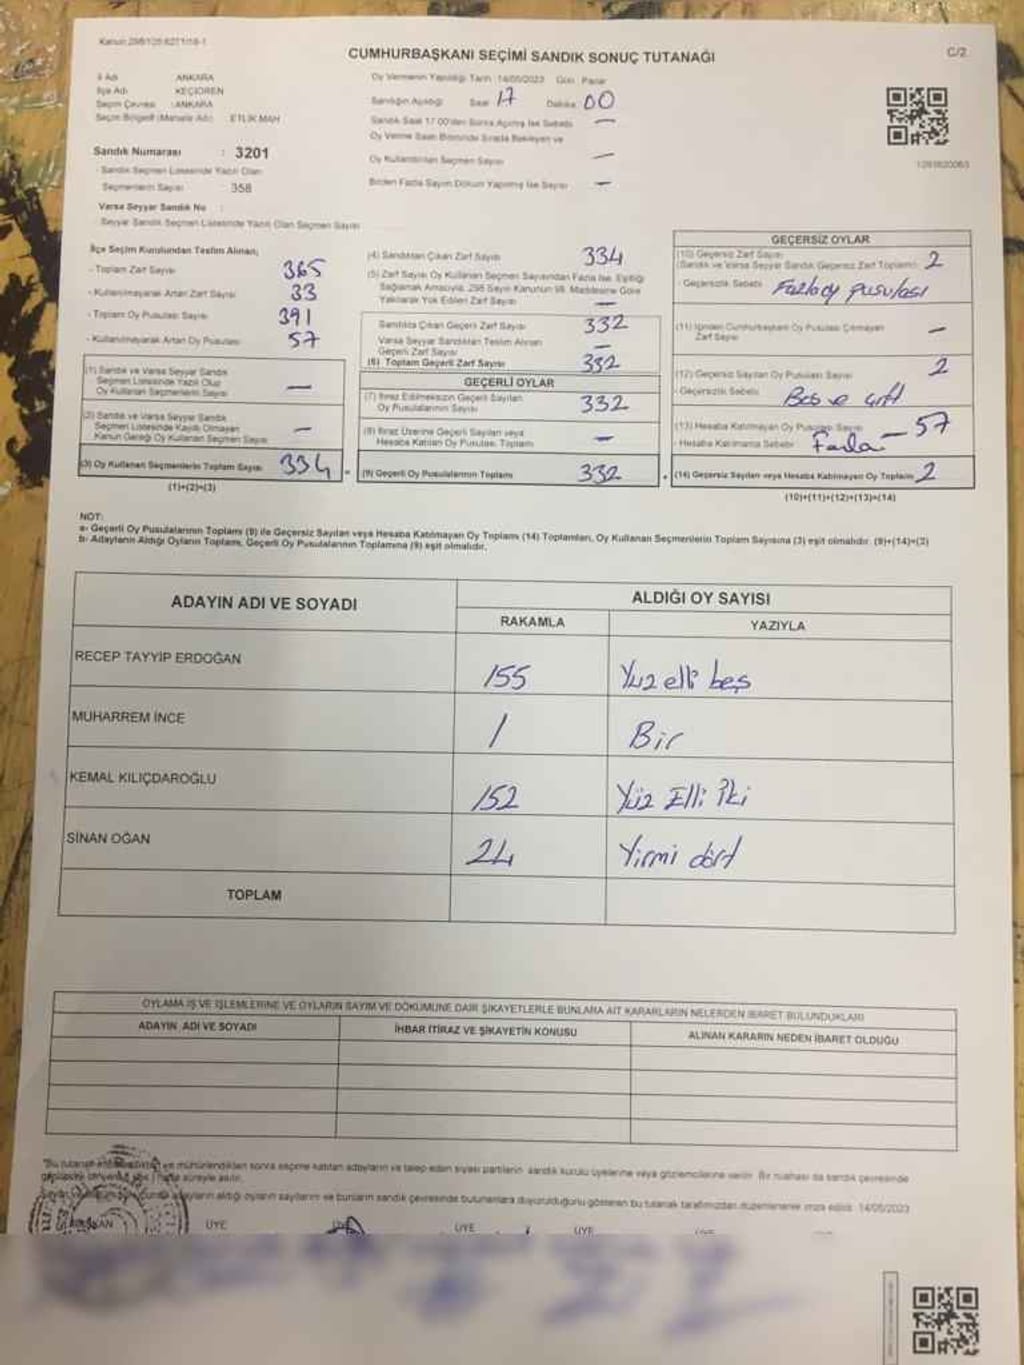 Kanun 298/105 6271/18-1
CUMHURBAŞKANI SEÇİMİ SANDIK SONUÇ TUTANAĞI
C/2
İl Adı ANKARA
İlçe Adı KEÇİÖREN
Seçim Çevresi : ANKARA
Seçim Bölgesi (Mahalle Adı) : ETLİK MAH
Sandık Numarası : 3201
- Sandık Seçmen Listesinde Yazılı Olan
Seçmenlerin Sayısı 358
Varsa Seyyar Sandık No :
Seyyar Sandık Seçmen Listesinde Yazılı Olan Seçmen Sayısı
Oy Vermenin Yapıldığı Tarih : 14/05/2023 Gün : Pazar
Sandığın Açıldığı Saat 17 Dakika 00
Sandık Saat 17.00'den Sonra Açılmış İse Sebebi —
Oy Verme Saati Bitiminde Sırada Bekleyen ve
Oy Kullandırılan Seçmen Sayısı —
Birden Fazla Sayım Döküm Yapılmış İse Sayısı —
İlçe Seçim Kurulundan Teslim Alınan;
- Toplam Zarf Sayısı 365
- Kullanılmayarak Artan Zarf Sayısı 33
- Toplam Oy Pusulası Sayısı 391
- Kullanılmayarak Artan Oy Pusulası 57
(1) Sandık ve Varsa Seyyar Sandık
Seçmen Listesinde Yazılı Olup
Oy Kullanan Seçmenlerin Sayısı —
(2) Sandık ve Varsa Seyyar Sandık
Seçmen Listesinde Kayıtlı Olmayan
Kanun Gereği Oy Kullanan Seçmen Sayısı —
(3) Oy Kullanan Seçmenlerin Toplam Sayısı 334
(1)+(2)=(3)
(4) Sandıktan Çıkan Zarf Sayısı 334
(5) Zarf Sayısı Oy Kullanan Seçmen Sayısından Fazla İse, Eşitliği
Sağlamak Amacıyla, 298 Sayılı Kanunun 98. Maddesine Göre
Yakılarak Yok Edilen Zarf Sayısı —
Sandıkta Çıkan Geçerli Zarf Sayısı 332
Varsa Seyyar Sandıktan Teslim Alınan
Geçerli Zarf Sayısı —
(6) Toplam Geçerli Zarf Sayısı 332
GEÇERLİ OYLAR
(7) İtiraz Edilmeksizin Geçerli Sayılan
Oy Pusulalarının Sayısı 332
(8) İtiraz Üzerine Geçerli Sayılan veya
Hesaba Katılan Oy Pusulası Toplamı —
(9) Geçerli Oy Pusulalarının Toplamı 332
GEÇERSİZ OYLAR
(10) Geçersiz Zarf Sayısı
(Sandık ve Varsa Seyyar Sandık Geçersiz Zarf Toplamı) 2
- Geçersizlik Sebebi Fazla oy pusulası
(11) İçinden Cumhurbaşkanı Oy Pusulası Çıkmayan
Zarf Sayısı —
(12) Geçersiz Sayılan Oy Pusulası Sayısı 2
- Geçersizlik Sebebi Boş ve çift
(13) Hesaba Katılmayan Oy Pusulası Sayısı — 57
- Hesaba Katılmama Sebebi Fazla
(14) Geçersiz Sayılan veya Hesaba Katılmayan Oy Toplamı 2
(10)+(11)+(12)+(13)=(14)
NOT:
a- Geçerli Oy Pusulalarının Toplamı (9) ile Geçersiz Sayılan veya Hesaba Katılmayan Oy Toplamı (14) Toplamları, Oy Kullanan Seçmenlerin Toplam Sayısına (3) eşit olmalıdır. (9)+(14)=(3)
b- Adayların Aldığı Oyların Toplamı, Geçerli Oy Pusulalarının Toplamına (9) eşit olmalıdır.
ADAYIN ADI VE SOYADI
ALDIĞI OY SAYISI
RAKAMLA YAZIYLA
RECEP TAYYİP ERDOĞAN 155 Yüz elli beş
MUHARREM İNCE 1 Bir
KEMAL KILIÇDAROĞLU 152 Yüz Elli İki
SİNAN OĞAN 24 Yirmi dört
TOPLAM
OYLAMA İŞ VE İŞLEMLERİNE VE OYLARIN SAYIM VE DÖKÜMÜNE DAİR ŞİKAYETLERLE BUNLARA AİT KARARLARIN NELERDEN İBARET BULUNDUKLARI
ADAYIN ADI VE SOYADI İHBAR İTİRAZ VE ŞİKAYETİN KONUSU ALINAN KARARIN NEDEN İBARET OLDUĞU
ve mühürlendikten sonra seçime katılan adayların ve talep eden siyasi partilerin sandık kurulu üyelerine veya gözlemcilerine verilir. Bir nüshası da sandık çevresinde
hafta süreyle asılır.
adayların aldığı oyların sayılarını ve bunların sandık çevresinde bulunanlara duyurulduğunu gösteren bu tutanak tarafımızdan düzenlenerek imza edildi. 14/05/2023
BAŞKAN ÜYE ÜYE ÜYE